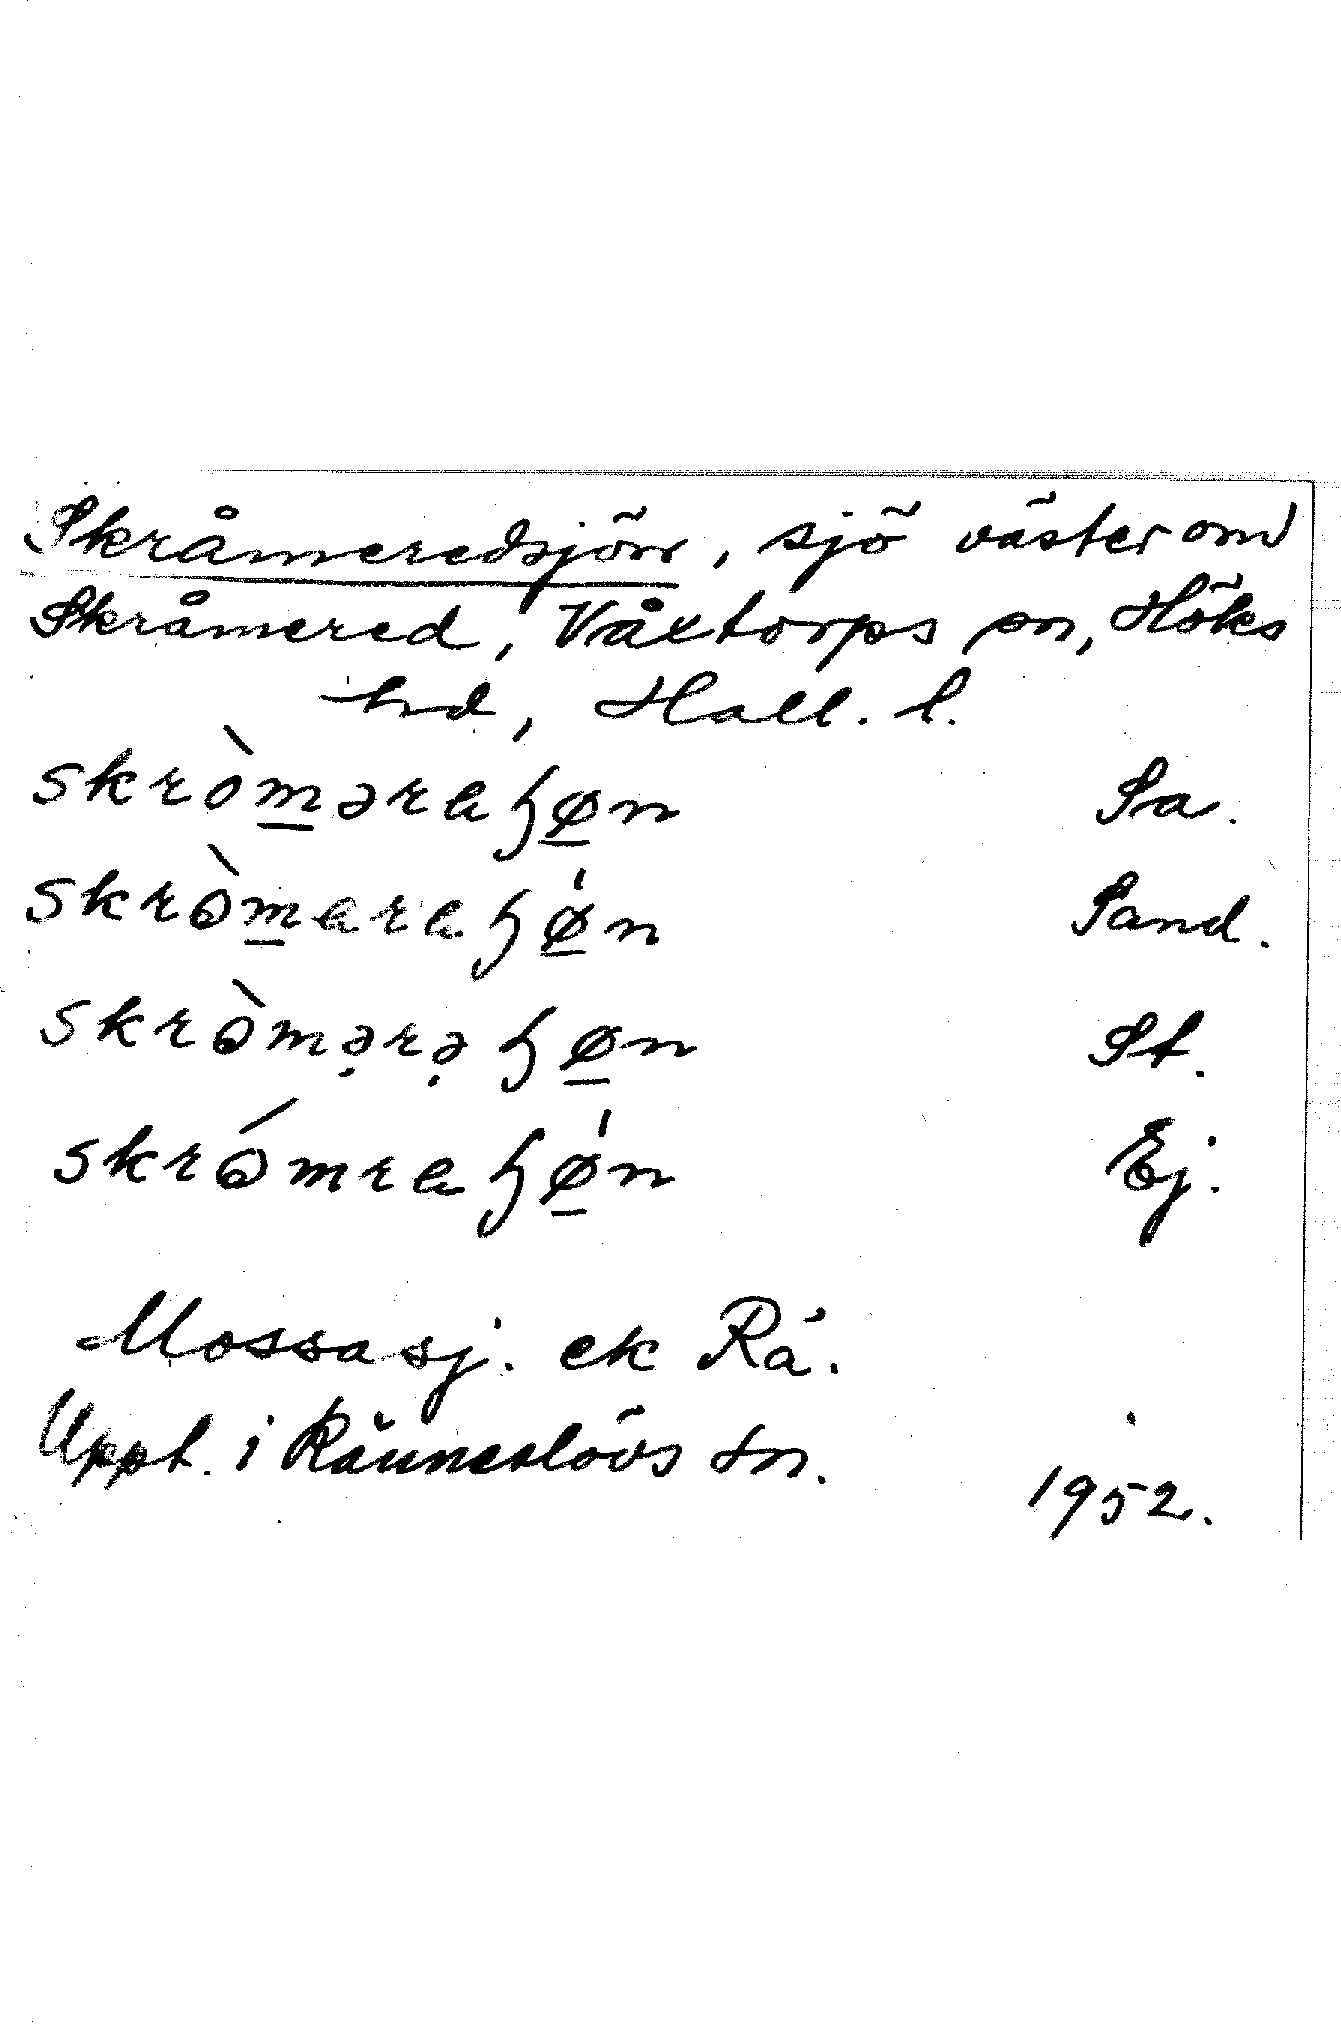 Skråmeredsjön, sjö väster om
Skråmered, Våxtorps sn, Höks
hd, Hall. l.
skròm̲əraɧø̲n Sa.
skròm̲araɧǿ̲n Sand.
skròmə̣rə̣ɧø̲n St.
skrómraɧǿ̲n Ej.
Mossasj. ek Rä.
Uppt. i Ränneslövs sn.
1952.